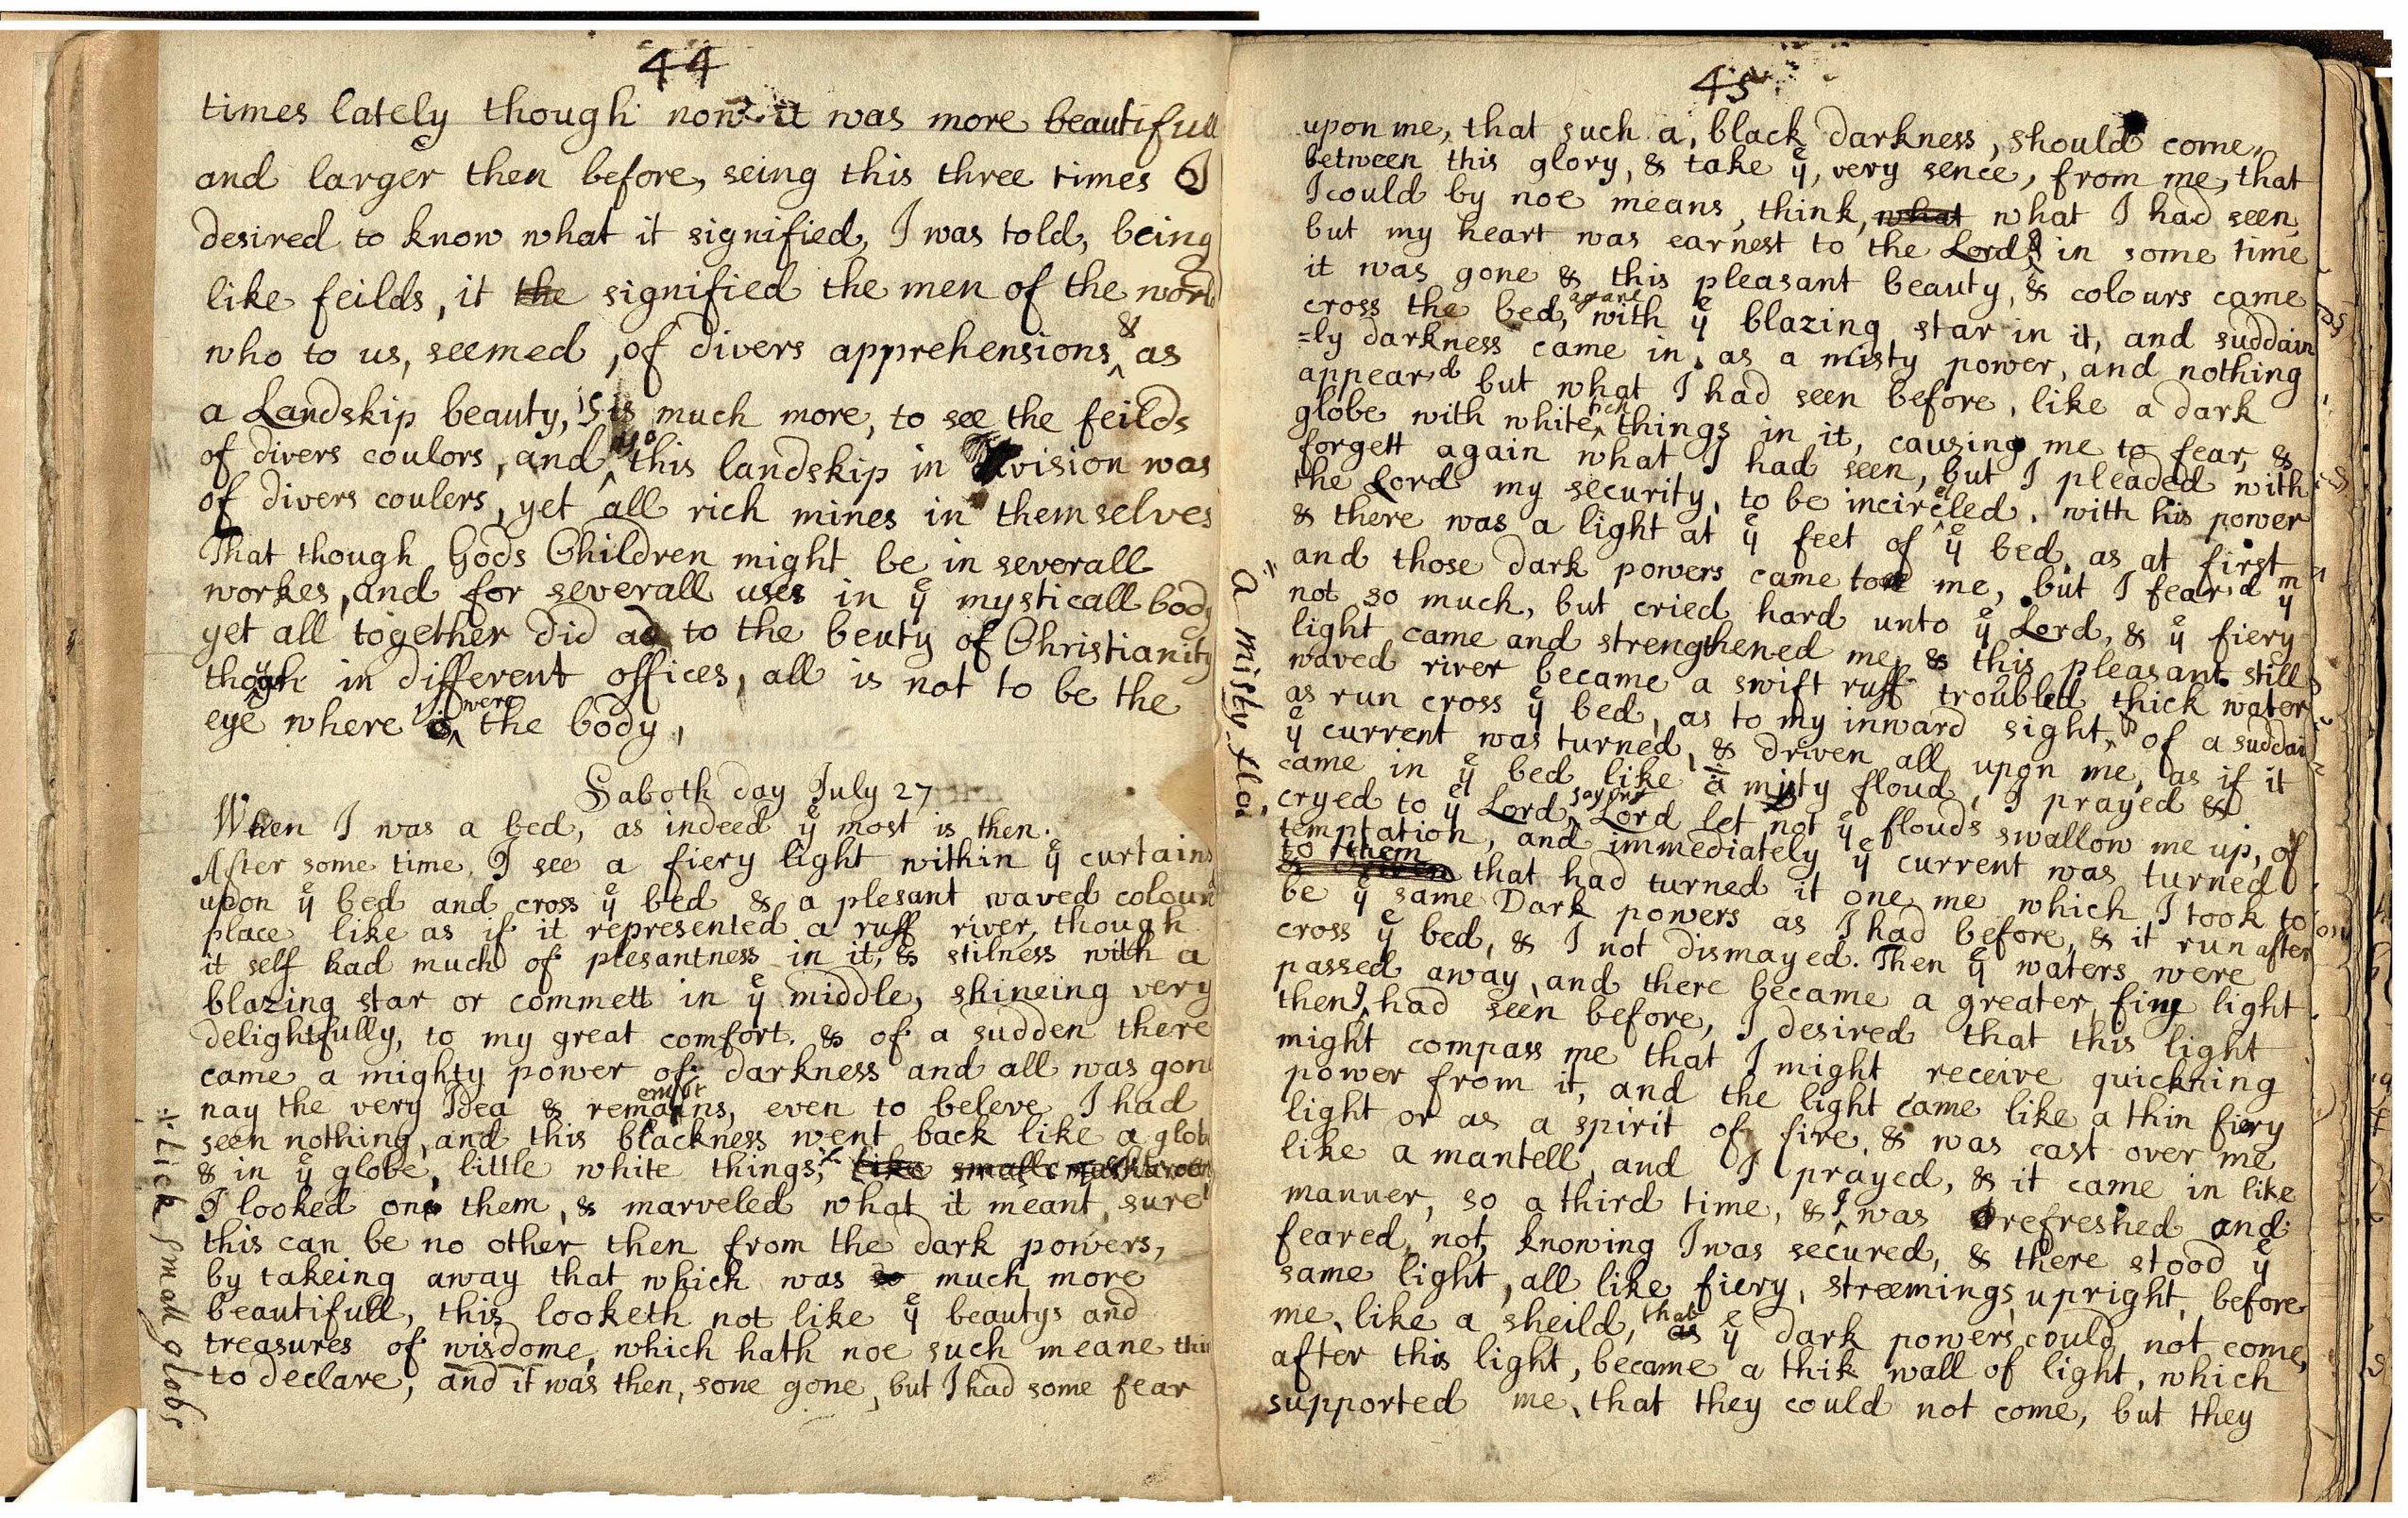 44
times lately though now it was more beautifull
and larger then before, seing this three times I
desired to know what it signified, I was told, being
like feilds, it the signified the men of the world
who to us, seemed, of divers apprehensions, & as
a Landskip beauty, is much more, to see the feilds
of divers coulors, and so this landskip in vision was
of divers coulers, yet all rich mines in themselves
That though Gods Children might be in severall
workes, and for severall uses in yͤ mysticall body
yet all together did ad to the beuty of Christianity
though in different offices, all is not to be the
eye where were the body,
Saboth day July 27
When I was a bed, as indeed yͤ most is then.
After some time, I see a fiery light within yͤ curtains
upon yͤ bed and cross yͤ bed & a plesant waved colourd
place like as if it represented a ruff river, though
it self had much of plesantness in it, & stilness with a
blazing star or commett in yͤ middle, shineing very
delightfully, to my great comfort. & of a sudden there
came a mighty power of darkness and all was gone
nay the very Idea & remains, even to beleve I had
seen nothing, and this blackness went back like a globe
& in yͤ globe, little white things, like small
I looked one them, & marveled what it meant, sure
this can be no other then from the dark powers,
by takeing away that which was so much more
beautifull, this looketh not like yͤ beautys and
treasures of wisdome, which hath noe such meane thin
to declare, and it was then, sone gone, but I had some fear
Lick small globs
45
upon me, that such a, black darkness, should come,
between this glory, & take yͤ, very sence, from me, that
I could by noe means, think, what what I had seen,
but my heart was earnest to the Lord & in some time
it was gone & this pleasant beauty, & colours came
cross the bed, agane with yͤ blazing star in it, and suddain
=ly darkness came in, as a misty power, and nothing
appeard but what I had seen before, like a dark
globe with white things in it, causing me to fear, &
forgett again what I had seen, but I pleaded with
the Lord my security, to be incircled, with his power
& there was a light at yͤ feet of yͤ bed, as at first
and those dark powers came to me, but I feard m
not so much, but cried hard unto yͤ Lord, & yͤ fiery
light came and strengthened me, & this pleasant still
waved river became a swift ruff troubled thick water
as run cross yͤ bed, as to my inward sight, & of a suddai
yͤ current was turned, & driven all upon me, as if it
came in yͤ bed like a misty floud, I prayed &
cryed to yͤ Lord, saying Lord let not yͤ flouds swallow me up, of
temptation, and immediately yͤ current was turned
to them that had turned it one me which I took to
be yͤ same Dark powers as I had before, & it run after
cross yͤ bed, & I not dismayed. Then yͤ waters were
passed away, and there became a greater, fine light
then I had seen before, I desired that this light
might compass me that I might receive quickning
power from it, and the light came like a thin fiery
light or as a spirit of fire, & was cast over me
like a mantell, and I prayed, & it came in like
manner, so a third time, & I was refreshed and
feared, not, knowing I was secured, & there stood yͤ
same light, all like fiery, streemings, upright, before
me, like a sheild, that as yͤ dark powers could, not come,
after this light, became a thik wall of light, which
supported me, that they could not come, but they
a misty flou